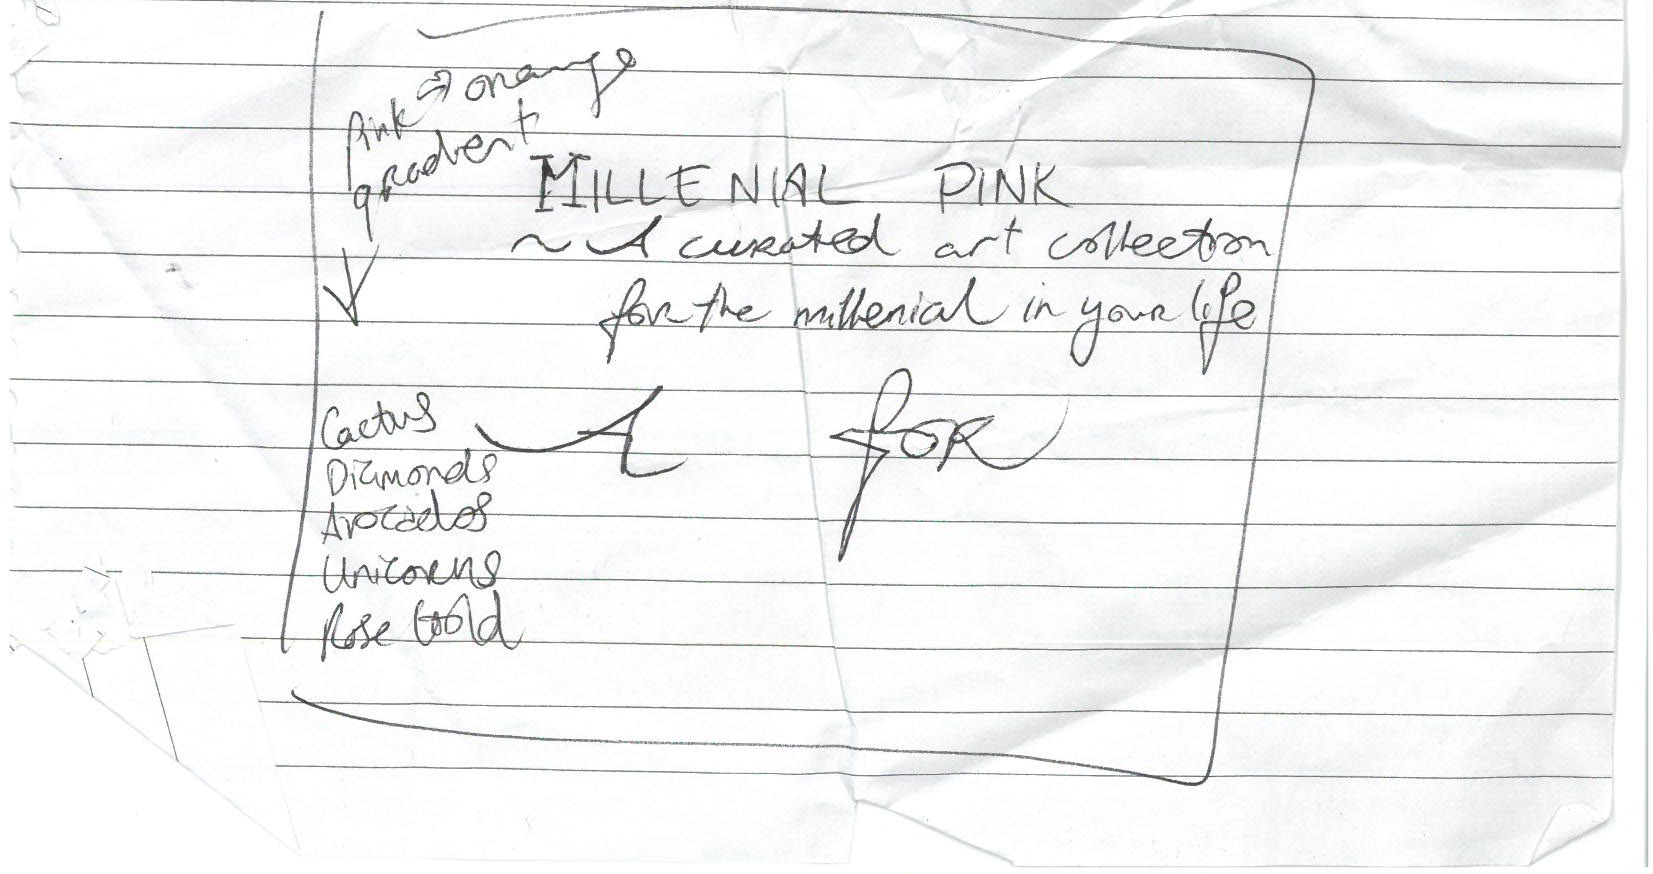 pink → orange
gradient
MILLENIAL PINK
~ A curated art collection
for the millenial in your life
Cactus
A for
Diamonds
Avocados
Unicorns
Rose Gold